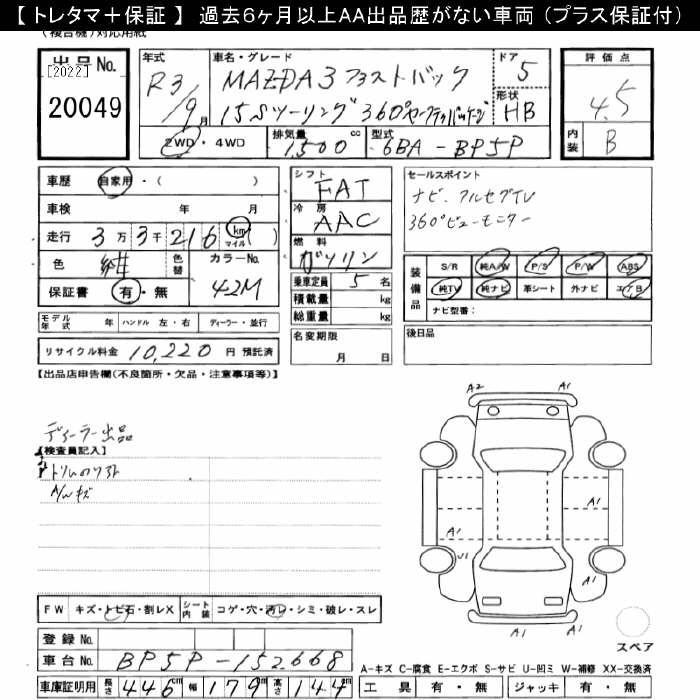 【 トレタマ＋保証 】 過去6ヶ月以上AA出品歴がない車両 (プラス保証付)
(複合機) 対応用紙
出品No. [2022] 20049
年式 R3/9月
車名・グレード MAZDA3 ファストバック
15Sツーリング 360°セーフティパッケージ
ドア 5
形状 HB
評価点 4.5
内装 B
2WD・4WD
排気量 1,500 cc
型式 6BA-BP5P
車歴 自家用・( )
車検 年 月
走行 3万3千216 km マイル ( )
色 紺 色替 カラーNo. 42M
保証書 有・無
シフト FAT
冷房 AAC
燃料 ガソリン
乗車定員 5 名
積載量 kg
総重量 kg
セールスポイント
ナビ、フルセグTV
360°ビューモニター
装備品 S/R 純A/W P/S P/W ABS
純TV 純ナビ 革シート 外ナビ エアB
ナビ型番:
モデル年式 年 ハンドル 左・右 ディーラー・並行
リサイクル料金 10,220 円 預託済
名変期限 月 日
後日品
【出品店申告欄(不良箇所・欠品・注意事項等)】
ディーラー出品
【検査員記入】
トリムのソフト
A/Wキズ
A2 A1
A1
A1 A1
U1 A1
A1
スペア
FW キズ・トビ石・割レX
シート内装 コゲ・穴・汚レ・シミ・破レ・スレ
登録No.
車台No. BP5P-152668
A-キズ C-腐食 E-エクボ S-サビ U-凹ミ W-補修 XX-交換済
車庫証明用 長さ 446cm 幅 179cm 高さ 144cm
工具 有・無 ジャッキ 有・無